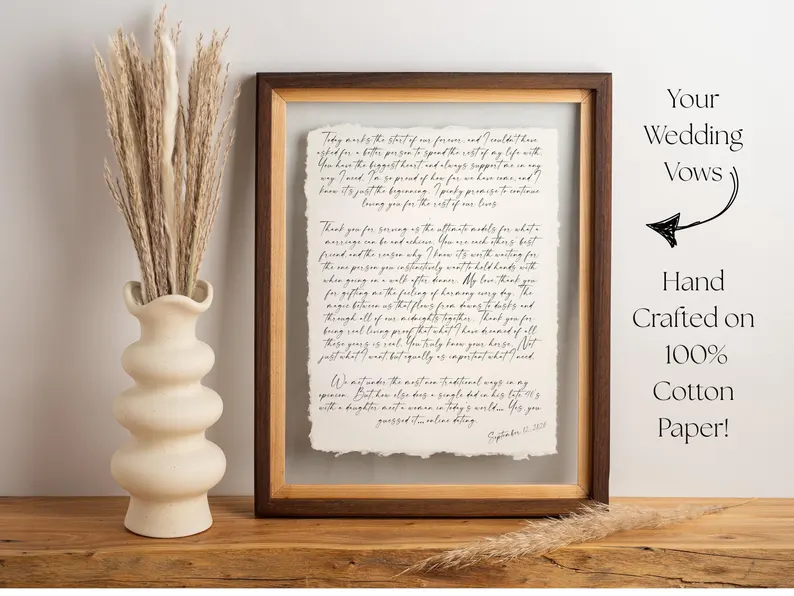 Today marks the start of our forever, and I couldn't have
asked for a better person to spend the rest of my life with.
You have the biggest heart and always support me in any
way I need. I'm so proud of how far we have come, and I
know it's just the beginning. I pinky promise to continue
loving you for the rest of our lives.
Thank you for serving as the ultimate models for what a
marriage can be and achieve. You are each other's best
friend, and the reason why I know it's worth waiting for
the one person you instinctively want to hold hands with
when going on a walk after dinner. My love, thank you
for gifting me the feeling of harmony every day. The
magic between us that flows from dawns to dusks and
through all of our midnights together. Thank you for
being real living proof that what I have dreamed of all
these years is real. You truly know your horse. Not
just what I want, but equally as important what I need.
We met under the most non traditional ways in my
opinion. But how else does a single dad in his late 40's
with a daughter meet a woman in today's world... Yes, you
guessed it... online dating.
September 12, 2020
Your
Wedding
Vows
Hand
Crafted on
100%
Cotton
Paper!